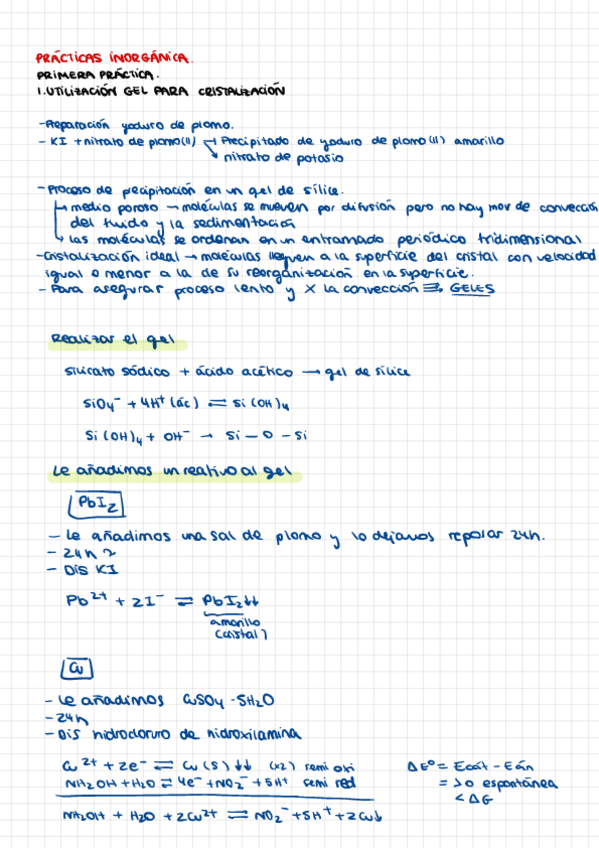 PRÁCTICAS INORGÁNICA.
PRIMERA PRÁCTICA.
1. UTILIZACIÓN GEL PARA CRISTALIZACIÓN
-Preparación yoduro de plomo.
- KI + nitrato de plomo(II) → Precipitado de yoduro de plomo(II) amarillo
→ nitrato de potasio
-Proceso de precipitación en un gel de sílice.
→ medio poroso → moléculas se mueven por difusión pero no hay mov de convección
del fluido y la sedimentación
→ las moléculas se ordenan en un entramado periódico tridimensional
-Cristalización ideal → moléculas lleguen a la superficie del cristal con velocidad
igual o menor a la de su reorganización en la superficie.
- Para asegurar proceso lento y X la convección ⇒ GELES
Realizar el gel
Silicato sódico + ácido acético → gel de sílice
SiO₄⁻ + 4H⁺ (ác) ⇌ Si(OH)₄
Si(OH)₄ + OH⁻ → Si - O - Si
Le añadimos un reativo al gel
PbI₂
- Le añadimos una sal de plomo y lo dejamos reposar 24h.
- 24h
- Dis KI
Pb²⁺ + 2I⁻ ⇌ PbI₂↓↓
amarillo
(cristal)
Cu
- Le añadimos CuSO₄ · 5H₂O
- 24h
- Dis hidrocloruro de hidroxilamina
Cu²⁺ + 2e⁻ ⇌ Cu (s) ↓↓ (x2) semi oxi
NH₂OH + H₂O ⇌ 4e⁻ + NO₂⁻ + 5H⁺ semi red
NH₂OH + H₂O + 2Cu²⁺ ⇌ NO₂⁻ + 5H⁺ + 2Cu↓
ΔE° = Ecát - Eán
= >0 espontánea
< ΔG